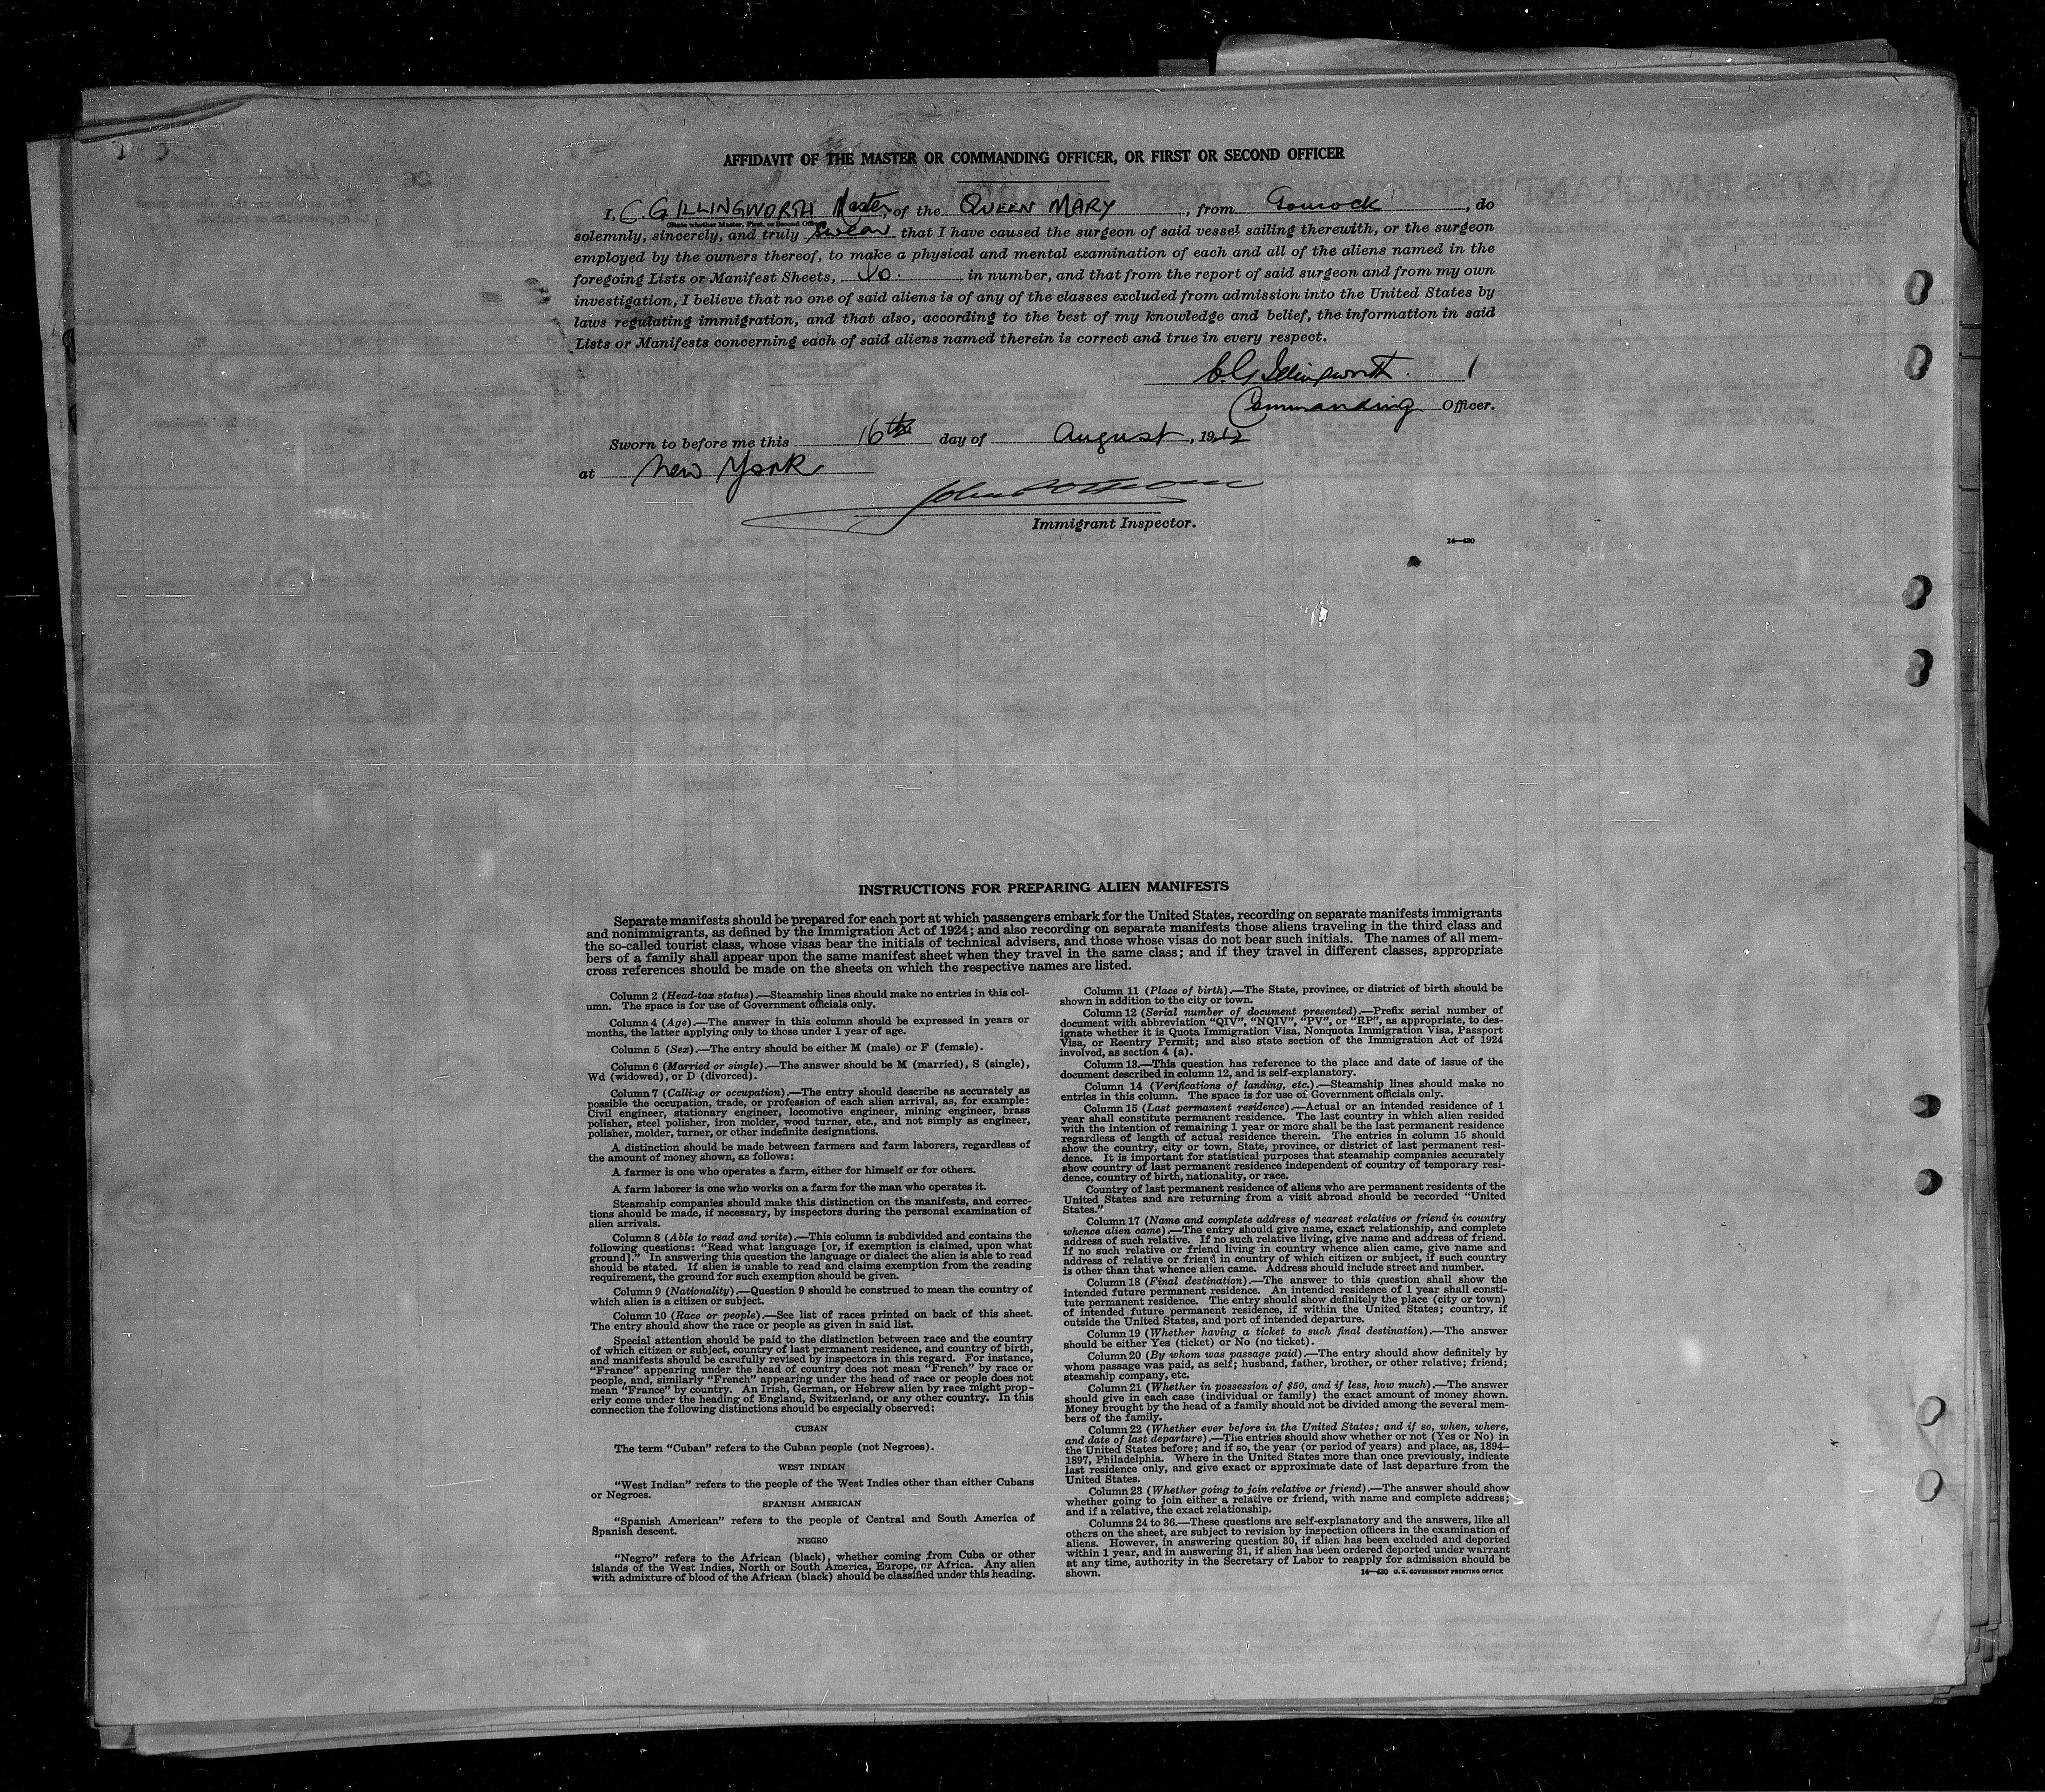 AFFIDAVIT OF THE MASTER OR COMMANDING OFFICER, OR FIRST OR SECOND OFFICER
I, C G ILLINGWORTH Master, of the QUEEN MARY, from Gourock, do
(State whether Master, First, or Second Officer)
solemnly, sincerely, and truly swear that I have caused the surgeon of said vessel sailing therewith, or the surgeon
employed by the owners thereof, to make a physical and mental examination of each and all of the aliens named in the
foregoing Lists or Manifest Sheets, in number, and that from the report of said surgeon and from my own
investigation, I believe that no one of said aliens is of any of the classes excluded from admission into the United States by
laws regulating immigration, and that also, according to the best of my knowledge and belief, the information in said
Lists or Manifests concerning each of said aliens named therein is correct and true in every respect.
C.G. Illingworth.
Commanding Officer.
Sworn to before me this 16th day of August, 1942
at New York
Immigrant Inspector.
14—430
INSTRUCTIONS FOR PREPARING ALIEN MANIFESTS
Separate manifests should be prepared for each port at which passengers embark for the United States, recording on separate manifests immigrants
and nonimmigrants, as defined by the Immigration Act of 1924; and also recording on separate manifests those aliens traveling in the third class and
the so-called tourist class, whose visas bear the initials of technical advisers, and those whose visas do not bear such initials. The names of all mem-
bers of a family shall appear upon the same manifest sheet when they travel in the same class; and if they travel in different classes, appropriate
cross references should be made on the sheets on which the respective names are listed.
Column 2 (Head-tax status).—Steamship lines should make no entries in this col-
umn. The space is for use of Government officials only.
Column 4 (Age).—The answer in this column should be expressed in years or
months, the latter applying only to those under 1 year of age.
Column 5 (Sex).—The entry should be either M (male) or F (female).
Column 6 (Married or single).—The answer should be M (married), S (single),
Wd (widowed), or D (divorced).
Column 7 (Calling or occupation).—The entry should describe as accurately as
possible the occupation, trade, or profession of each alien arrival, as, for example:
Civil engineer, stationary engineer, locomotive engineer, mining engineer, brass
polisher, steel polisher, iron molder, wood turner, etc., and not simply as engineer,
polisher, molder, turner, or other indefinite designations.
A distinction should be made between farmers and farm laborers, regardless of
the amount of money shown, as follows:
A farmer is one who operates a farm, either for himself or for others.
A farm laborer is one who works on a farm for the man who operates it.
Steamship companies should make this distinction on the manifests, and correc-
tions should be made, if necessary, by inspectors during the personal examination of
alien arrivals.
Column 8 (Able to read and write).—This column is subdivided and contains the
following questions: "Read what language [or, if exemption is claimed, upon what
ground]." In answering this question the language or dialect the alien is able to read
should be stated. If alien is unable to read and claims exemption from the reading
requirement, the ground for such exemption should be given.
Column 9 (Nationality).—Question 9 should be construed to mean the country of
which alien is a citizen or subject.
Column 10 (Race or people).—See list of races printed on back of this sheet.
The entry should show the race or people as given in said list.
Special attention should be paid to the distinction between race and the country
of which citizen or subject, country of last permanent residence, and country of birth,
and manifests should be carefully revised by inspectors in this regard. For instance,
"France" appearing under the head of country does not mean "French" by race or
people, and, similarly "French" appearing under the head of race or people does not
mean "France" by country. An Irish, German, or Hebrew alien by race might prop-
erly come under the heading of England, Switzerland, or any other country. In this
connection the following distinctions should be especially observed:
CUBAN
The term "Cuban" refers to the Cuban people (not Negroes).
WEST INDIAN
"West Indian" refers to the people of the West Indies other than either Cubans
or Negroes.
SPANISH AMERICAN
"Spanish American" refers to the people of Central and South America of
Spanish descent.
NEGRO
"Negro" refers to the African (black), whether coming from Cuba or other
islands of the West Indies, North or South America, Europe, or Africa. Any alien
with admixture of blood of the African (black) should be classified under this heading.
Column 11 (Place of birth).—The State, province, or district of birth should be
shown in addition to the city or town.
Column 12 (Serial number of document presented).—Prefix serial number of
document with abbreviation "QIV", "NQIV", "PV", or "RP", as appropriate, to des-
ignate whether it is Quota Immigration Visa, Nonquota Immigration Visa, Passport
Visa, or Reentry Permit; and also state section of the Immigration Act of 1924
involved, as section 4 (a).
Column 13.—This question has reference to the place and date of issue of the
document described in column 12, and is self-explanatory.
Column 14 (Verifications of landing, etc.).—Steamship lines should make no
entries in this column. The space is for use of Government officials only.
Column 15 (Last permanent residence).—Actual or an intended residence of 1
year shall constitute permanent residence. The last country in which alien resided
with the intention of remaining 1 year or more shall be the last permanent residence
regardless of length of actual residence therein. The entries in column 15 should
show the country, city or town, State, province, or district of last permanent resi-
dence. It is important for statistical purposes that steamship companies accurately
show country of last permanent residence independent of country of temporary resi-
dence, country of birth, nationality, or race.
Country of last permanent residence of aliens who are permanent residents of the
United States and are returning from a visit abroad should be recorded "United
States."
Column 17 (Name and complete address of nearest relative or friend in country
whence alien came).—The entry should give name, exact relationship, and complete
address of such relative. If no such relative living, give name and address of friend.
If no such relative or friend living in country whence alien came, give name and
address of relative or friend in country of which citizen or subject, if such country
is other than that whence alien came. Address should include street and number.
Column 18 (Final destination).—The answer to this question shall show the
intended future permanent residence. An intended residence of 1 year shall consti-
tute permanent residence. The entry should show definitely the place (city or town)
of intended future permanent residence, if within the United States; country, if
outside the United States, and port of intended departure.
Column 19 (Whether having a ticket to such final destination).—The answer
should be either Yes (ticket) or No (no ticket).
Column 20 (By whom was passage paid).—The entry should show definitely by
whom passage was paid, as self; husband, father, brother, or other relative; friend;
steamship company, etc.
Column 21 (Whether in possession of $50, and if less, how much).—The answer
should give in each case (individual or family) the exact amount of money shown.
Money brought by the head of a family should not be divided among the several mem-
bers of the family.
Column 22 (Whether ever before in the United States; and if so, when, where,
and date of last departure).—The entries should show whether or not (Yes or No) in
the United States before; and if so, the year (or period of years) and place, as, 1894–
1897, Philadelphia. Where in the United States more than once previously, indicate
last residence only, and give exact or approximate date of last departure from the
United States.
Column 23 (Whether going to join relative or friend).—The answer should show
whether going to join either a relative or friend, with name and complete address;
and if a relative, the exact relationship.
Columns 24 to 36.—These questions are self-explanatory and the answers, like all
others on the sheet, are subject to revision by inspection officers in the examination of
aliens. However, in answering question 30, if alien has been excluded and deported
within 1 year, and in answering 31, if alien has been ordered deported under warrant
at any time, authority in the Secretary of Labor to reapply for admission should be
shown.
14—430 U. S. GOVERNMENT PRINTING OFFICE